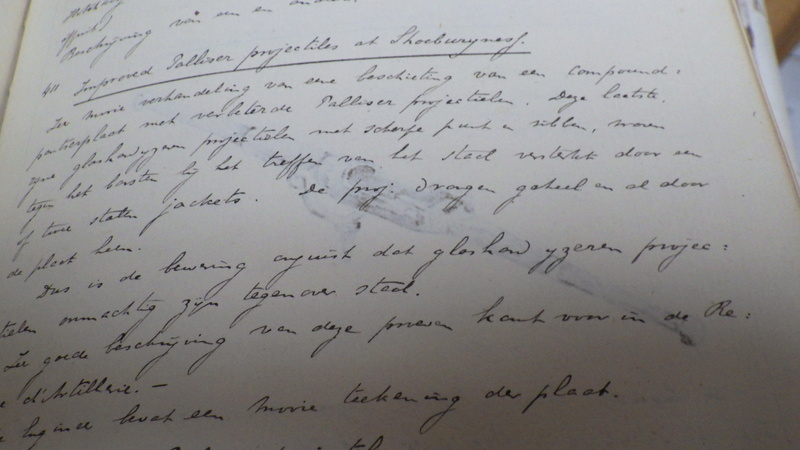 Beschrijving van een en ander.
411 Improved Palliser projectiles at Shoeburyness.
Zeer mooie verhandeling van eene beschieting van een compound-
pantserplaat met verbeterde Palliser projectielen. Deze laatste,
zijnde glashardyzeren projectielen met scherpe punt en ribben, waren
tegen het barsten bij het treffen van het staal versterkt door een
of twee stalen jackets. De proj. drongen geheel en al door
de plaat heen.
Dus is de bewering onjuist dat glashard yzeren projec=
tielen onmachtig zijn tegenover staal.
Zeer goede beschrijving van deze proeven komt voor in de Re=
d'Artillerie. —
bevat een mooie teekening der plaat.